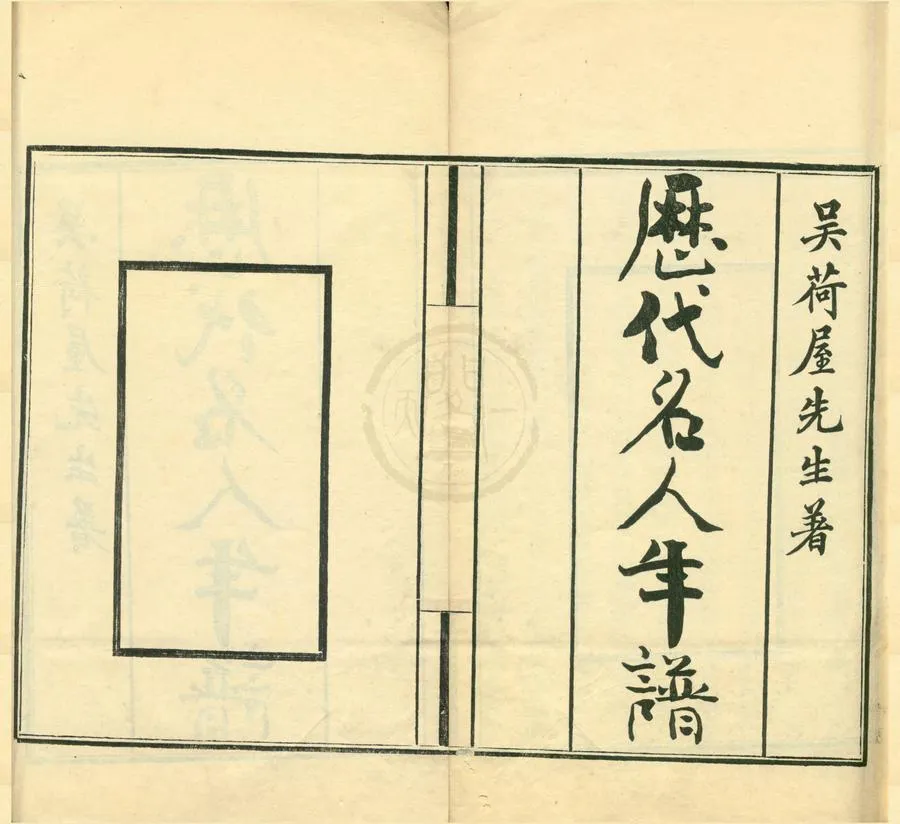 吴荷屋先生著
歴代名人年譜